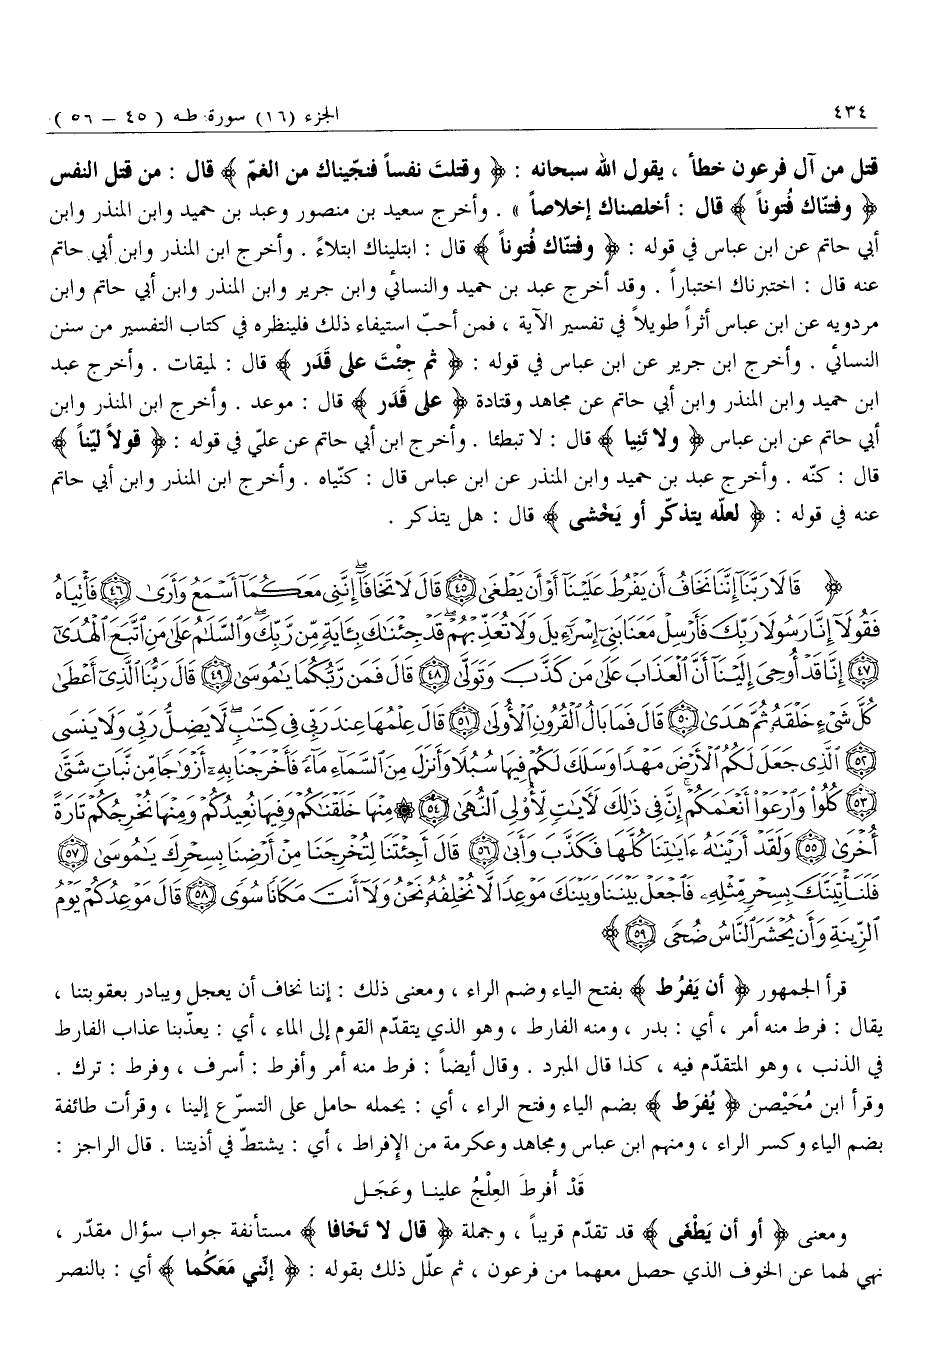 ٤٣٤ الجزء (١٦) سورة طه ( ٤٥ – ٥٦ )
قتل من آل فرعون خطأ ، يقول الله سبحانه : ﴿ وقتلت نفساً فنجّيناك من الغمّ ﴾ قال : من قتل النفس
﴿ وفتنّاك فُتوناً ﴾ قال : أخلصناك إخلاصاً » . وأخرج سعيد بن منصور وعبد بن حميد وابن المنذر وابن
أبي حاتم عن ابن عباس في قوله : ﴿ وفتنّاك فُتوناً ﴾ قال : ابتليناك ابتلاءً . وأخرج ابن المنذر وابن أبي حاتم
عنه قال : اختبرناك اختباراً . وقد أخرج عبد بن حميد والنسائي وابن جرير وابن المنذر وابن أبي حاتم وابن
مردويه عن ابن عباس أثراً طويلاً في تفسير الآية ، فمن أحبّ استيفاء ذلك فلينظره في كتاب التفسير من سنن
النسائي . وأخرج ابن جرير عن ابن عباس في قوله : ﴿ ثم جِئْتَ على قَدَر ﴾ قال : لميقات . وأخرج عبد
ابن حميد وابن المنذر وابن أبي حاتم عن مجاهد وقتادة ﴿ على قَدَر ﴾ قال : موعد . وأخرج ابن المنذر وابن
أبي حاتم عن ابن عباس ﴿ ولا تَنِيا ﴾ قال : لا تبطئا . وأخرج ابن أبي حاتم عن عليّ في قوله : ﴿ قولاً ليّناً ﴾
قال : كنّه . وأخرج عبد بن حميد وابن المنذر عن ابن عباس قال : كنّياه . وأخرج ابن المنذر وابن أبي حاتم
عنه في قوله : ﴿ لعلّه يتذكّر أو يَخْشى ﴾ قال : هل يتذكر .
﴿ قَالَا رَبَّنَآ إِنَّنَا نَخَافُ أَن يَفْرُطَ عَلَيْنَآ أَوْ أَن يَطْغَىٰ ٤٥ قَالَ لَا تَخَافَآ إِنَّنِى مَعَكُمَآ أَسْمَعُ وَأَرَىٰ ٤٦ فَأْتِيَاهُ
فَقُولَآ إِنَّا رَسُولَا رَبِّكَ فَأَرْسِلْ مَعَنَا بَنِىٓ إِسْرَٰٓءِيلَ وَلَا تُعَذِّبْهُمْ قَدْ جِئْنَٰكَ بِـَٔايَةٍ مِّن رَّبِّكَ وَٱلسَّلَٰمُ عَلَىٰ مَنِ ٱتَّبَعَ ٱلْهُدَىٰٓ
٤٧ إِنَّا قَدْ أُوحِىَ إِلَيْنَآ أَنَّ ٱلْعَذَابَ عَلَىٰ مَن كَذَّبَ وَتَوَلَّىٰ ٤٨ قَالَ فَمَن رَّبُّكُمَا يَٰمُوسَىٰ ٤٩ قَالَ رَبُّنَا ٱلَّذِىٓ أَعْطَىٰ
كُلَّ شَىْءٍ خَلْقَهُۥ ثُمَّ هَدَىٰ ٥٠ قَالَ فَمَا بَالُ ٱلْقُرُونِ ٱلْأُولَىٰ ٥١ قَالَ عِلْمُهَا عِندَ رَبِّى فِى كِتَٰبٍ لَّا يَضِلُّ رَبِّى وَلَا يَنسَى
٥٢ ٱلَّذِى جَعَلَ لَكُمُ ٱلْأَرْضَ مَهْدًا وَسَلَكَ لَكُمْ فِيهَا سُبُلًا وَأَنزَلَ مِنَ ٱلسَّمَآءِ مَآءً فَأَخْرَجْنَا بِهِۦٓ أَزْوَٰجًا مِّن نَّبَاتٍ شَتَّىٰ
٥٣ كُلُوا۟ وَٱرْعَوْا۟ أَنْعَٰمَكُمْ إِنَّ فِى ذَٰلِكَ لَءَايَٰتٍ لِّأُو۟لِى ٱلنُّهَىٰ ٥٤ ۞ مِنْهَا خَلَقْنَٰكُمْ وَفِيهَا نُعِيدُكُمْ وَمِنْهَا نُخْرِجُكُمْ تَارَةً
أُخْرَىٰ ٥٥ وَلَقَدْ أَرَيْنَٰهُ ءَايَٰتِنَا كُلَّهَا فَكَذَّبَ وَأَبَىٰ ٥٦ قَالَ أَجِئْتَنَا لِتُخْرِجَنَا مِنْ أَرْضِنَا بِسِحْرِكَ يَٰمُوسَىٰ ٥٧
فَلَنَأْتِيَنَّكَ بِسِحْرٍ مِّثْلِهِۦ فَٱجْعَلْ بَيْنَنَا وَبَيْنَكَ مَوْعِدًا لَّا نُخْلِفُهُۥ نَحْنُ وَلَآ أَنتَ مَكَانًا سُوًى ٥٨ قَالَ مَوْعِدُكُمْ يَوْمُ
ٱلزِّينَةِ وَأَن يُحْشَرَ ٱلنَّاسُ ضُحًى ٥٩ ﴾
قرأ الجمهور ﴿ أن يَفرُط ﴾ بفتح الياء وضم الراء ، ومعنى ذلك : إننا نخاف أن يعجل ويبادر بعقوبتنا ،
يقال : فرط منه أمر ، أي : بدر ، ومنه الفارط ، وهو الذي يتقدّم القوم إلى الماء ، أي : يعذّبنا عذاب الفارط
في الذنب ، وهو المتقدّم فيه ، كذا قال المبرد . وقال أيضاً : فرط منه أمر وأفرط : أسرف ، وفرط : ترك .
وقرأ ابن مُحَيْصن ﴿ يُفرَط ﴾ بضم الياء وفتح الراء ، أي : يحمله حامل على التسرّع إلينا ، وقرأت طائفة
بضم الياء وكسر الراء ، ومنهم ابن عباس ومجاهد وعكرمة من الإفراط ، أي : يشتطّ في أذيتنا . قال الراجز :
قَدْ أَفرطَ العِلْجُ علينـا وعَجَـل
ومعنى ﴿ أو أن يَطْغَى ﴾ قد تقدّم قريباً ، وجملة ﴿ قال لا تَخافا ﴾ مستأنفة جواب سؤال مقدّر ،
نهي لهما عن الخوف الذي حصل معهما من فرعون ، ثم علّل ذلك بقوله : ﴿ إنّني مَعَكُما ﴾ أي : بالنصر